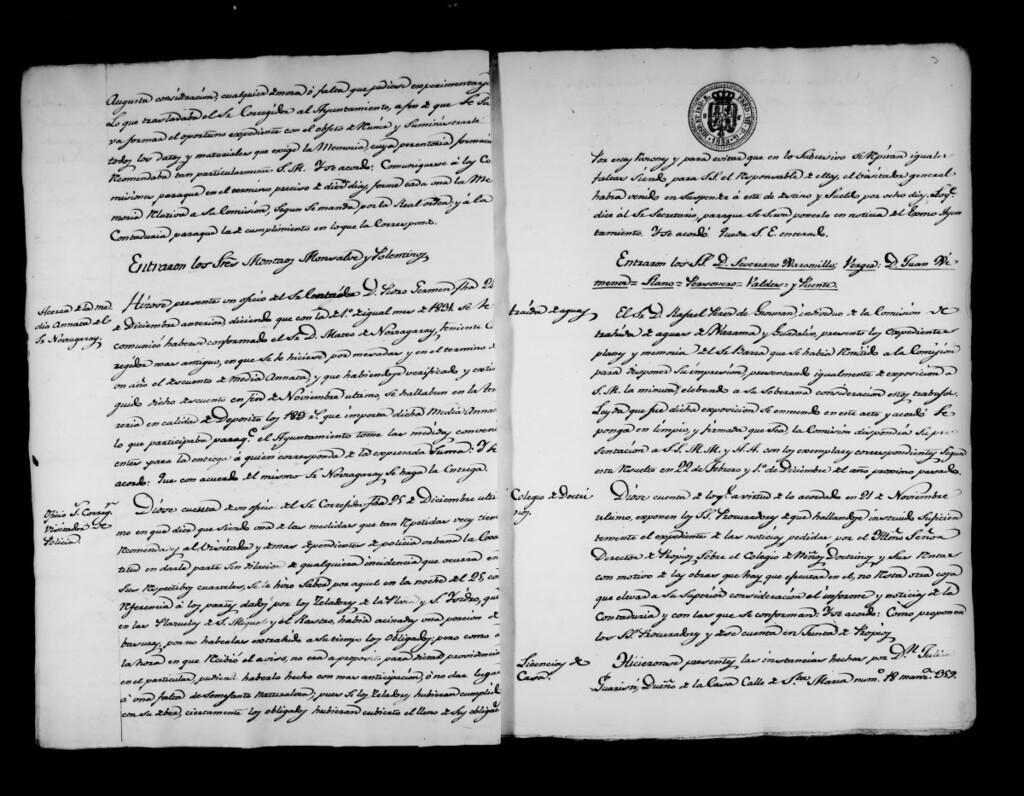 Augusta consideracion, cualquiera demora ó falta que pudiese experimentarse
Lo que trasladaba el Sr. Corregidor al Ayuntamiento, á fin de que se sir
va formar el oportuno expediente con el objeto de reunir y Suministrarle
todos los Datos y materiales que exige la Memoria, cuya perentoria formacion
recomendaba tan particularmente S.M. Y se acordó: Comuniquese á las Co
misiones para que en el termino preciso de diez dias, forme cada una la Me
moria relativa á su Comision, segun se manda por la Real orden, y á la
Contaduria para que la de cumplimiento en lo que la Corresponde.
Entraron los Sres. Montaos Monsalve y Polentinos
Acerca de la me
dia Annata del
Sr. Norzagaray
Hizose presente un oficio del Sr. Contador D. Pedro German fha. 24
de Diciembre anterior, diciendo que con la de 1º de igual mes de 1831 se le
comunicó haberse conformado el Sr. D. Mateo de Norzagaray, Teniente Co
rregidor mas antiguo, en que se le hiciese por mesadas y en el termino de
un año el descuento de media Annata, y que habiendose verificado y extin
guido dicho descuento en fin de Noviembre ultimo, se hallaban en la teso
reria en calidad de Deposito los que importa dicha Media Annata
lo que participaba para qe. el Ayuntamiento tome las medidas conveni
entes para la entrega á quien corresponda de la expresada Suma: Y se
acordó: Que con acuerdo del mismo Sr. Norzagaray se haga la Entrega.
Oficio S. Corregr.
Visitador de
Policia.
Diose cuenta de un oficio del Sr. Corregidor fha. 25 de Diciembre ulti
mo en que dice, que siendo una de las medidas que tan repetidas veces tiene
recomendadas al Visitador y demas dependientes de policia urbana la Exac
titud en darle parte sin dilacion de qualquiera incidencia que ocurra en
sus respectivos cuarteles, se le hizo saber por aquel en la noche del 25, con
referencia á los partes dados por los Zeladores de la Plaza y S. Ysidro, que
en las Plazuelas de S. Miguel y el Rastro, habia acinadas una porcion de
basuras, por no haberlas extrahido á su tiempo los obligados; pero como á
la hora en que recibió el aviso, no era á proposito para dictar providencias
en el particular, pudiendo haberlo hecho con mas anticipacion, ó no dar lugar
á una falta de semejante naturaleza; pues si los Zeladores hubieran cumplido
con su deber, ciertamente los obligados hubieran cubierto el lleno de sus obligaci
Por estas razones y para evitar que en lo subcesivo se repitan iguales
faltas siendo para S.S. el responsable de ellas, el Visitador general
habia venido en suspender á este de destino y sueldo por ocho dias, Lo qe.
dice al Sr. Secretario, para que se sirva ponerlo en noticia del Excmo. Ayun
tamiento. Y se acordó. Queda S.E. enterado.
Entraron los SS. D. Severiano Paramillo; Vargas: D. Juan
menor = Llano = Personero = Valdes = y Puente.
traida de aguas
El Sr. D. Rafael Perez de Guzman, individuo de la Comision de
trahida de aguas de Xarama y Guadalix, presentó los expedientes
planos y memoria del Sr. Barra que se habia remitido á la Comision
para disponer su impresion, presentando igualmente de exposicion á
S.M. la minuta, elebando á su Soberana consideracion estos trabajos.
Leyda que fue dicha exposicion se enmendó en este acto y acordó se
ponga en limpio, y firmada que sea, la Comision disponga su pre
sentacion á SS.MM. y AA. con los exemplares correspondientes segun
esta resuelto en 22 de Febrero y 1º de Diciembre del año proximo pasado.
Colegio de Doctri
nos.
Diose cuenta de lo qe. á virtud de lo acordado en 21 de Noviembre
ultimo, exponen los SS. Procuradores de que hallandose instruido suficien
temente el expediente de las noticias pedidas por el Yllmo. Señor
Director de Propios sobre el Colegio de Niños Doctrinos, y sus rentas
con motivo de las obras que hay que ejecutar en el, no resta otra cosa
que elevar á su superior consideracion el informe y noticias de la
Contaduria y con las que se conformaron: Y se acordó: Como proponen
los SS. Procuradores y dese cuenta en Junta de Propios
Licencias de
Casa.
Hicieronse presentes, las instancias hechas por D. Julian
Dueño de la Casa Calle de Sta. Maria num. 18 manz. 252.